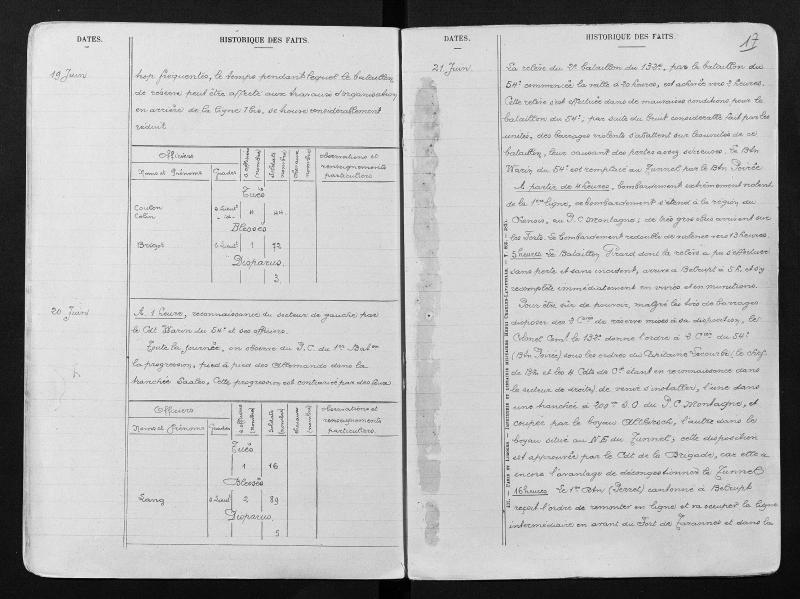 DATES.
HISTORIQUE DES FAITS.
19 Juin
trop fréquentés, le temps pendant lequel le bataillon
de réserve peut être affecté aux travaux d'organisation
en arrière de la ligne 1 bis, se trouve considérablement
réduit
Officiers
Noms et Prénoms
Grades
Officiers (nombre)
Soldats (nombre)
Chevaux (nombre)
Observations et renseignements particuliers
Tués
Coulon S Lieut
Colin -id- 4 44
Blessés
Brizot S Lieut 1 72
Disparus.
3.
20 Juin
A 1 heure, reconnaissance du secteur de gauche par
le Cdt Warin du 54e et ses officiers.
Toute la journée, on observe du P.C. du 1er Baton
la progression, pied à pied des Allemands dans la
tranchée Saales, Cette progression est contrariée par des feux
Officiers
Noms et Prénoms
Grades
Officiers (nombre)
Soldats (nombre)
Chevaux (nombre)
Observations et renseignements particuliers.
Tués
1 16
Blessés
Lang S Lieut 2 89
Disparus.
5
DATES.
HISTORIQUE DES FAITS.
17
21 Juin.
La relève du 2e bataillon du 132e par le bataillon du
54e commencée la veille à 20 heures, est achevée vers 2 heures.
Cette relève s'est effectuée dans de mauvaises conditions pour le
bataillon du 54e, par suite du bruit considérable fait par les
unités, des barrages violents s'abattent sur les unités de ce
bataillon, leur causant des pertes assez sérieuses. Le Btn
Warin du 54e est remplacé au Tunnel par le Btn Poirée
A partir de 4 heures, bombardement extrêmement violent
de la 1ère ligne, ce bombardement s'étend à la région du
Chenois, au P.C. Montagne; de très gros obus arrivent sur
les Forts. Le bombardement redouble de violence vers 13 heures.
5 heures Le Bataillon Pirard dont la relève a pu s'effectuer
sans perte et sans incident, arrive à Belrupt à 5 h. et s'y
recomplète immédiatement en vivres et en munitions.
Pour être sûr de pouvoir, malgré les tirs de barrages
disposer des 2 Cies de réserve mises à sa disposition, le
Colonel Comt le 132e donne l'ordre à 2 Cies du 54e
(Btn Poirée) sous les ordres du Capitaine Lecourbe (le chef
de Btn et les 4 Cdts de Cie étant en reconnaissance dans
le secteur de droite) de venir s'installer, l'une dans
une tranchée à 200m S.O du P.C. Montagne, et
coupée par le boyau Altkirch, l'autre dans le
boyau situé au N E du Tunnel; cette disposition
est approuvée par le Cdt de la Brigade, car elle a
encore l'avantage de décongestionner le Tunnel
16 heures Le 1er Btn (Perret) cantonné à Belrupt
reçoit l'ordre de remonter en ligne et va occuper la ligne
intermédiaire en avant du Fort de Tavannes et dans la